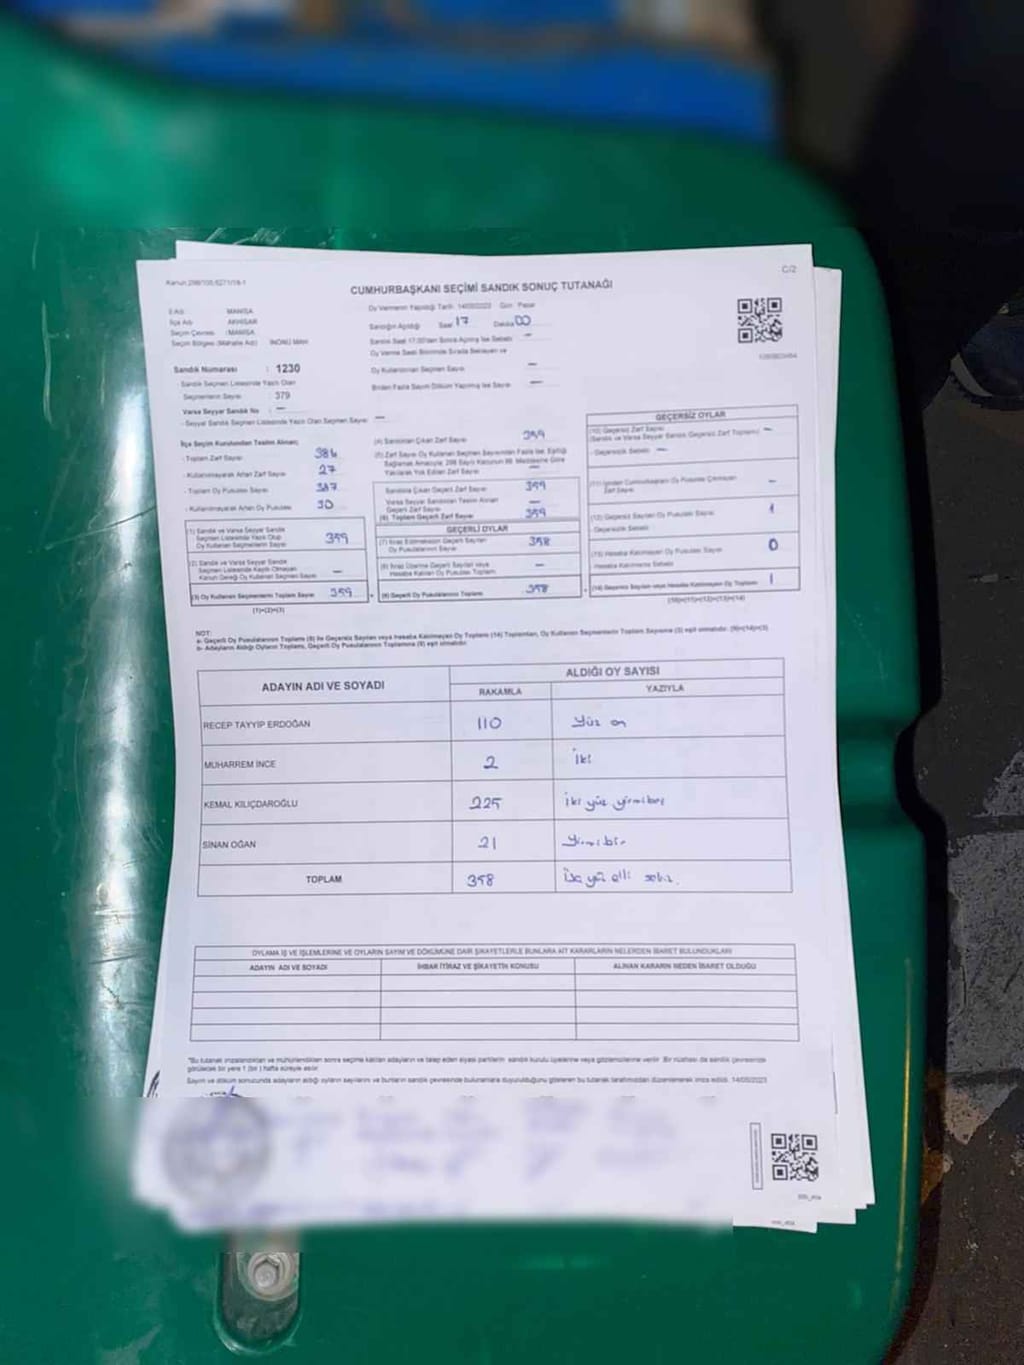 Kanun:298/105,6271/19-1
C/2
CUMHURBAŞKANI SEÇİMİ SANDIK SONUÇ TUTANAĞI
İl Adı : MANİSA
İlçe Adı : AKHİSAR
Seçim Çevresi : MANİSA
Seçim Bölgesi (Mahalle Adı) İNÖNÜ MAH
Sandık Numarası : 1230
Sandık Seçmen Listesinde Yazılı Olan
Seçmenlerin Sayısı : 379
Varsa Seyyar Sandık No : —
- Seyyar Sandık Seçmen Listesinde Yazılı Olan Seçmen Sayısı: —
Oy Vermenin Yapıldığı Tarih: 14/05/2023 Gün: Pazar
Sandığın Açıldığı Saat 17 Dakika 00
Sandık Saat 17:00'den Sonra Açılmış İse Sebebi: —
Oy Verme Saati Bitiminde Sırada Bekleyen ve
Oy Kullandırılan Seçmen Sayısı: —
Birden Fazla Sayım Döküm Yapılmış İse Sayısı: —
İlçe Seçim Kurulundan Teslim Alınan;
- Toplam Zarf Sayısı 386
- Kullanılmayarak Artan Zarf Sayısı 27
- Toplam Oy Pusulası Sayısı 387
- Kullanılmayarak Artan Oy Pusulası
(1) Sandık ve Varsa Seyyar Sandık
Seçmen Listesinde Yazılı Olup
Oy Kullanan Seçmenlerin Sayısı 359
(2) Sandık ve Varsa Seyyar Sandık
Seçmen Listesinde Kayıtlı Olmayan
Kanun Gereği Oy Kullanan Seçmen Sayısı —
(3) Oy Kullanan Seçmenlerin Toplam Sayısı 359
(1)+(2)=(3)
(4) Sandıktan Çıkan Zarf Sayısı 359
(5) Zarf Sayısı Oy Kullanan Seçmen Sayısından Fazla İse, Eşitliği
Sağlamak Amacıyla, 298 Sayılı Kanunun 98. Maddesine Göre
Yakılarak Yok Edilen Zarf Sayısı —
Sandıkta Çıkan Geçerli Zarf Sayısı 359
Varsa Seyyar Sandıktan Teslim Alınan
Geçerli Zarf Sayısı —
(6) Toplam Geçerli Zarf Sayısı 359
GEÇERLİ OYLAR
(7) İtiraz Edilmeksizin Geçerli Sayılan
Oy Pusulalarının Sayısı 358
(8) İtiraz Üzerine Geçerli Sayılan veya
Hesaba Katılan Oy Pusulası Toplamı —
(9) Geçerli Oy Pusulalarının Toplamı 358
GEÇERSİZ OYLAR
(10) Geçersiz Zarf Sayısı
(Sandık ve Varsa Seyyar Sandık Geçersiz Zarf Toplamı) —
- Geçersizlik Sebebi —
(11) İçinden Cumhurbaşkanı Oy Pusulası Çıkmayan
Zarf Sayısı —
(12) Geçersiz Sayılan Oy Pusulası Sayısı 1
- Geçersizlik Sebebi
(13) Hesaba Katılmayan Oy Pusulası Sayısı 0
Hesaba Katılmama Sebebi
(14) Geçersiz Sayılan veya Hesaba Katılmayan Oy Toplamı 1
(10)+(11)+(12)+(13)=(14)
NOT:
a- Geçerli Oy Pusulalarının Toplamı (9) ile Geçersiz Sayılan veya Hesaba Katılmayan Oy Toplamı (14) Toplamları, Oy Kullanan Seçmenlerin Toplam Sayısına (3) eşit olmalıdır. (9)+(14)=(3)
b- Adayların Aldığı Oyların Toplamı, Geçerli Oy Pusulalarının Toplamına (9) eşit olmalıdır.
ADAYIN ADI VE SOYADI ALDIĞI OY SAYISI
RAKAMLA YAZIYLA
RECEP TAYYİP ERDOĞAN 110 Yüz on
MUHARREM İNCE 2 İki
KEMAL KILIÇDAROĞLU 225 İki yüz yirmibeş
SİNAN OĞAN 21 Yirmibir
TOPLAM 358 Üç yüz elli sekiz.
OYLAMA İŞ VE İŞLEMLERİNE VE OYLARIN SAYIM VE DÖKÜMÜNE DAİR ŞİKAYETLERLE BUNLARA AİT KARARLARIN NELERDEN İBARET BULUNDUKLARI
ADAYIN ADI VE SOYADI İHBAR İTİRAZ VE ŞİKAYETİN KONUSU ALINAN KARARIN NEDEN İBARET OLDUĞU
*Bu tutanak imzalandıktan ve mühürlendikten sonra seçime katılan adayların ve talep eden siyasi partilerin sandık kurulu üyelerine veya gözlemcilerine verilir. Bir nüshası da sandık çevresinde
görülecek bir yere 1 (bir) hafta süreyle asılır.
Sayım ve döküm sonucunda adayların aldığı oyların sayılarını ve bunların sandık çevresinde bulunanlara duyurulduğunu gösteren bu tutanak tarafımızdan düzenlenerek imza edildi. 14/05/2023